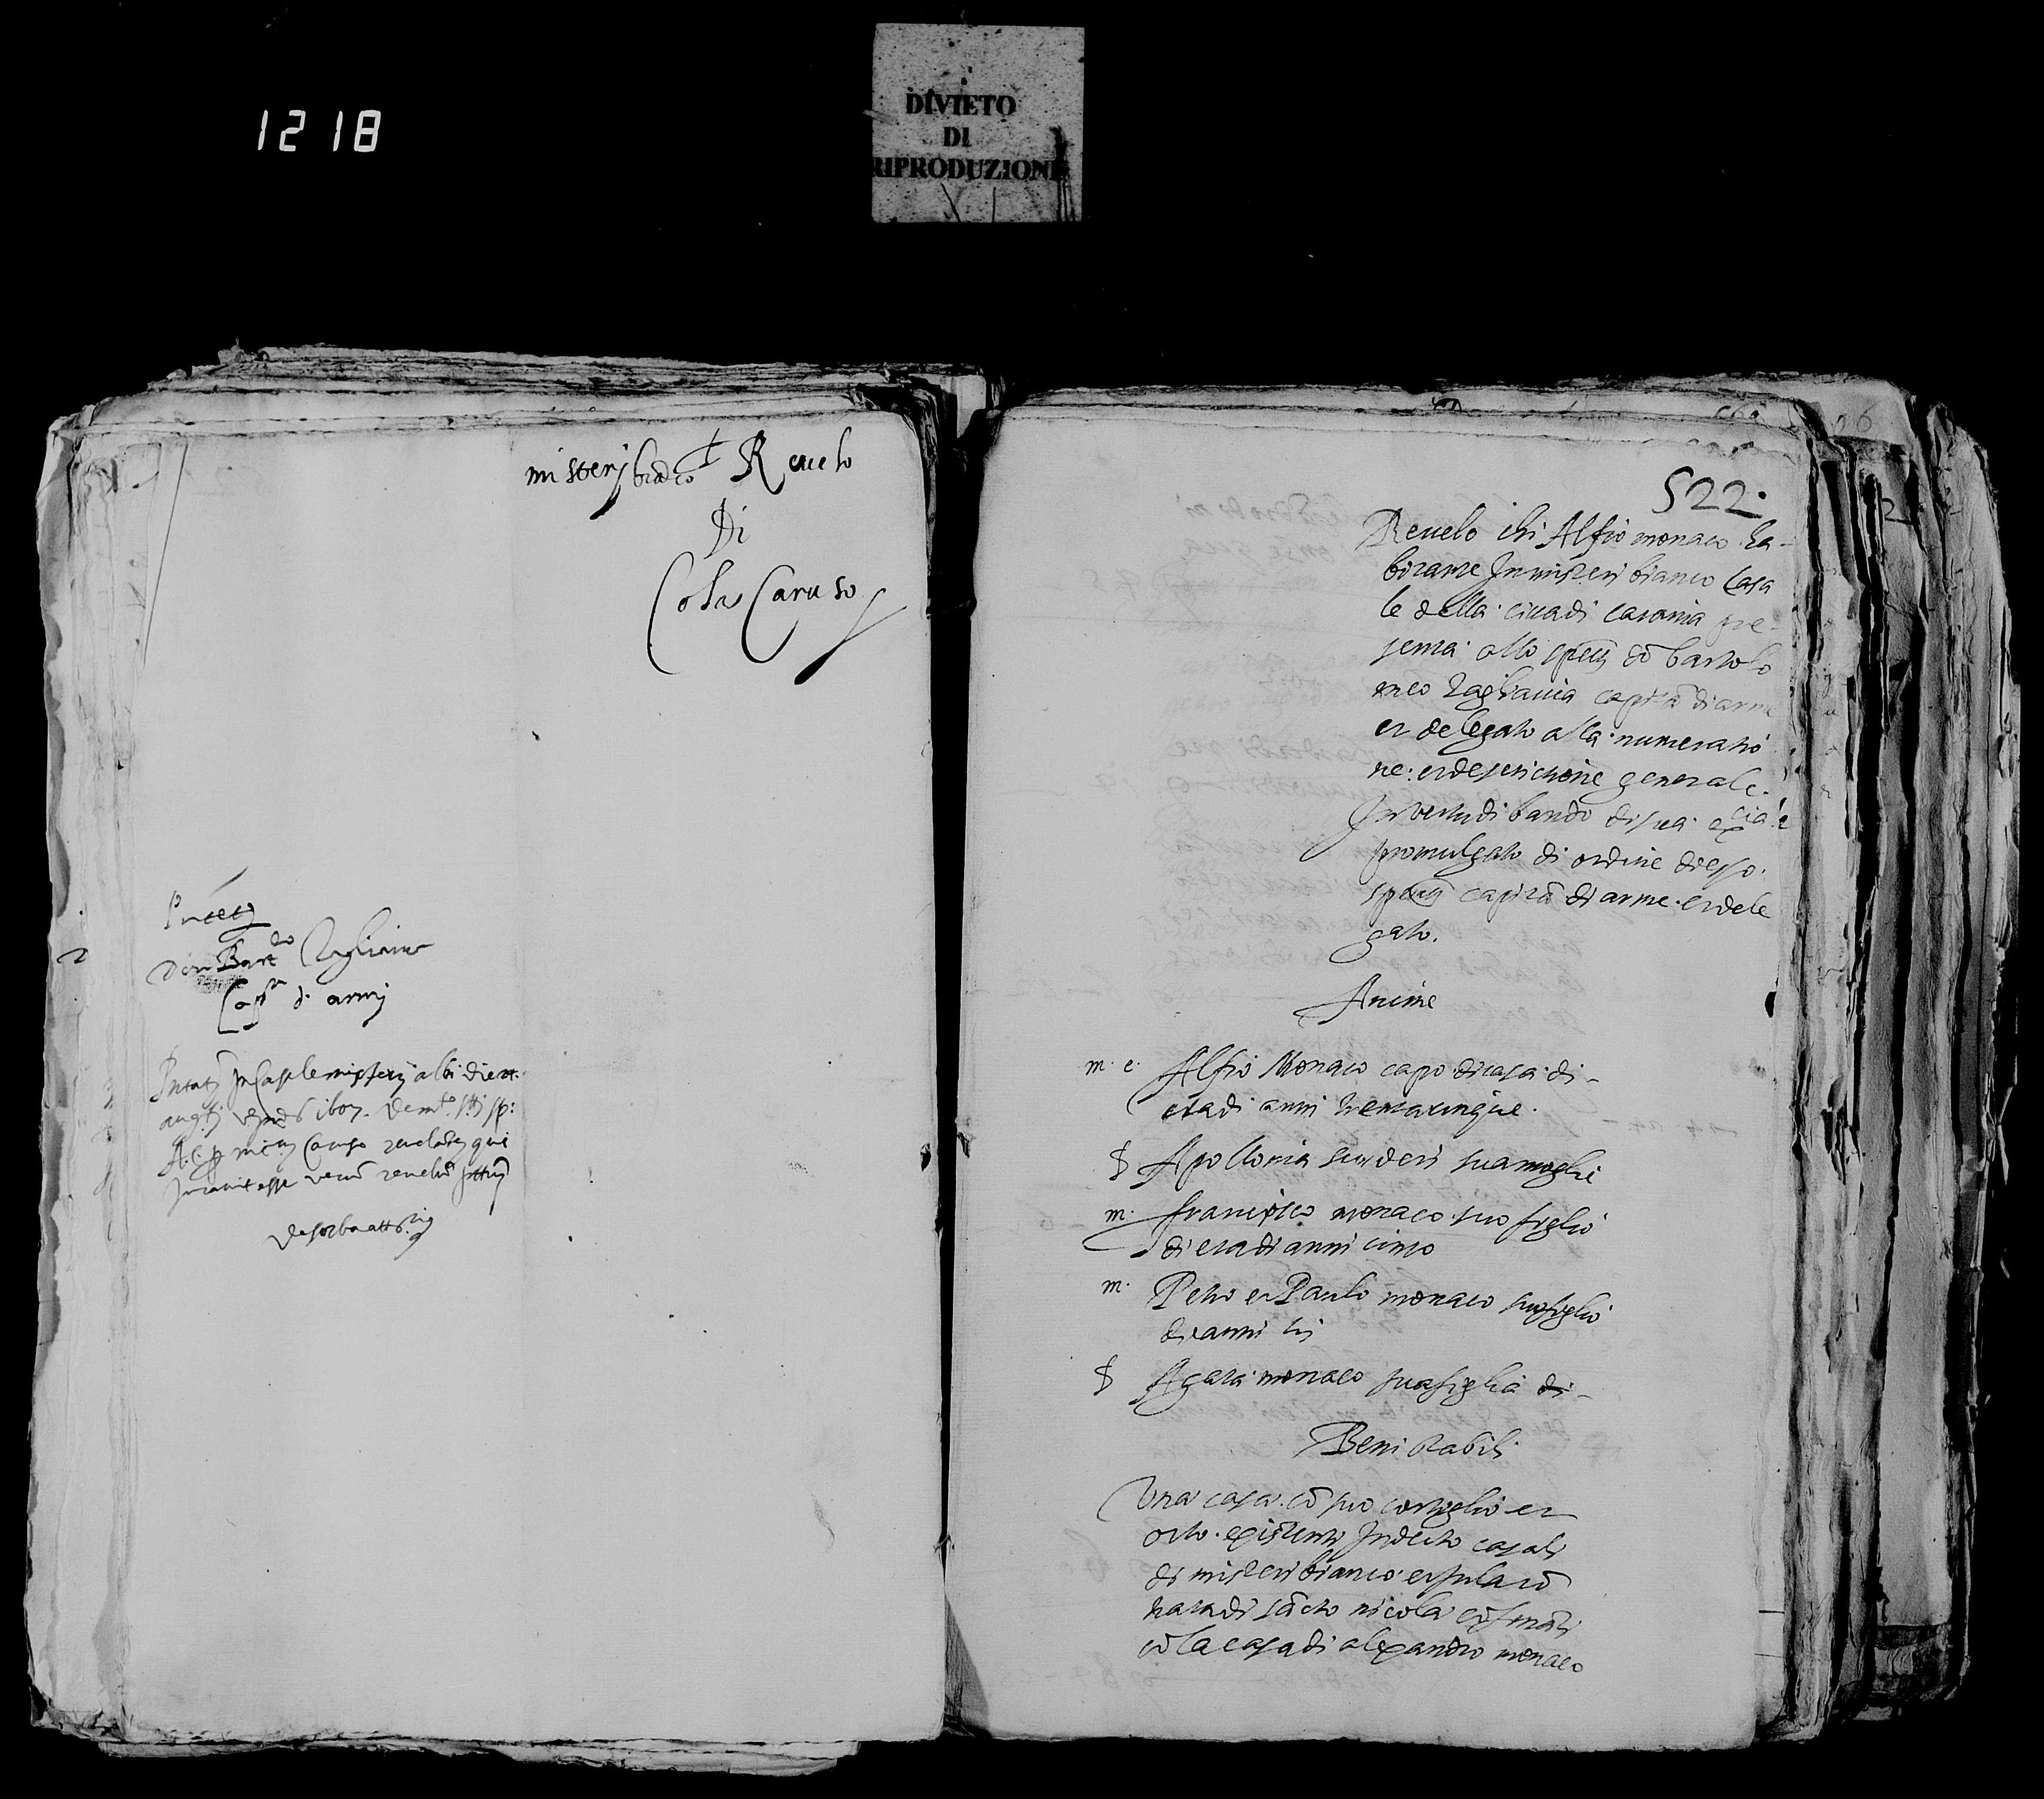 1218
DIVIETO
DI
RIPRODUZIONE
misterj bianco Revelo
Di
Cola Caruso
Don Bart.do Tagliavia
Cap.n d'armj
522.
Revelo chi Alfio monaco ha-
bitante In misteri bianco Casa
le della citta di catania pre-
senta allo spett. do bartolo
meo tagliavia capita di arme
et delegato alla numeratio
ne et descrictione generale
In vertu di bando di sua ex.cia e
promulgato di ordine di esso
spett. capita di arme et dele
gato.
Anime
m. e. Alfio Monaco capo di casa di-
etadi anni trentacinque.
f Apollonia suderi sua moglie
m. francisco monaco suo figlio
di etadi anni cinco
m. Petro et Paulo monaco suo figlio
di anni tri
f Agata monaco sua figlia di-
Beni stabili
Una casa co suo cortiglio et
orto existenti In decto casali
di misteri bianco et in la co
trata di sacto nicola cofinati
co la casa di alexandro monaco